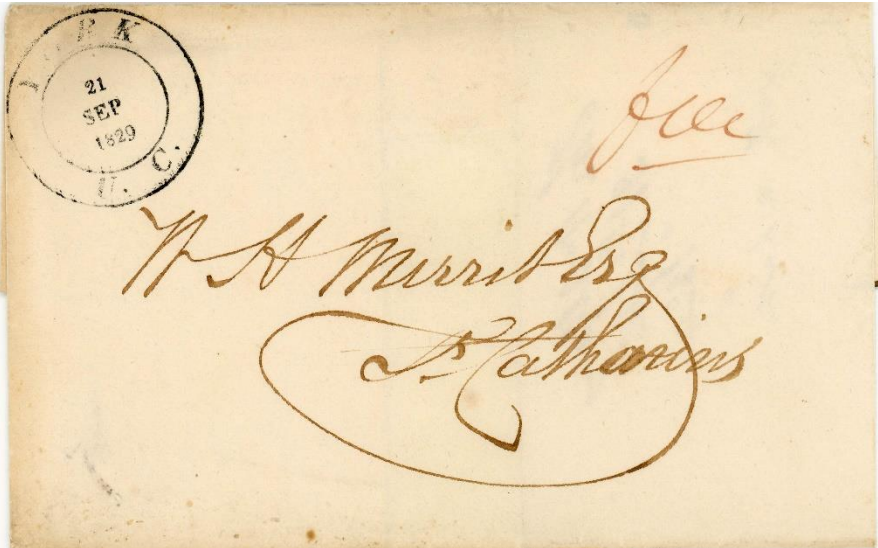 YORK
21
SEP
1829
U. C.
free
W H Merrit Esq
St Catharines